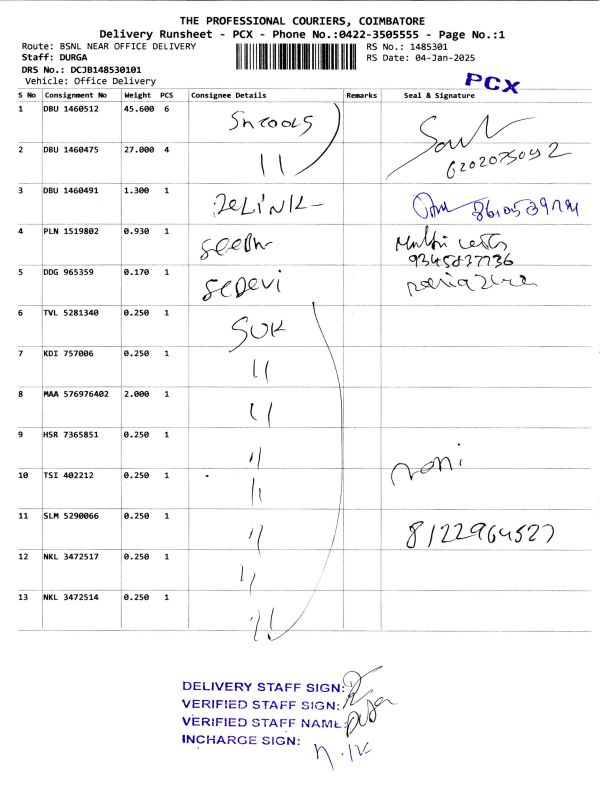 THE PROFESSIONAL COURIERS, COIMBATORE
Delivery Runsheet - PCX - Phone No.:0422-3505555 - Page No.:1
Route: BSNL NEAR OFFICE DELIVERY
RS No.: 1485301
Staff: DURGA
RS Date: 04-Jan-2025
DRS No.: DCJB148530101
Vehicle: Office Delivery
PCX
S No Consignment No Weight PCS Consignee Details Remarks Seal & Signature
1 DBU 1460512 45.600 6
2 DBU 1460475 27.000 4 11
3 DBU 1460491 1.300 1
4 PLN 1519802 0.930 1
9345837736
5 DDG 965359 0.170 1
6 TVL 5281340 0.250 1 SUK
7 KDI 757006 0.250 1 11
8 MAA 576976402 2.000 1 11
9 HSR 7365851 0.250 1 11
10 TSI 402212 0.250 1 11
11 SLM 5290066 0.250 1 11 8122964527
12 NKL 3472517 0.250 1 11
13 NKL 3472514 0.250 1 11
DELIVERY STAFF SIGN:
VERIFIED STAFF SIGN:
VERIFIED STAFF NAME:
INCHARGE SIGN: